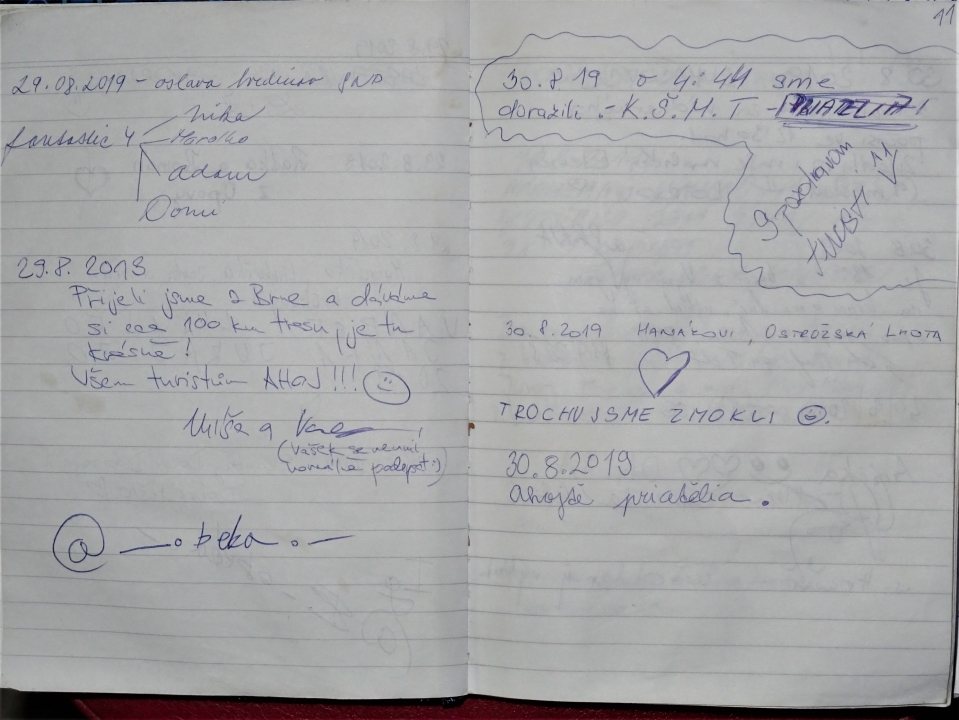 29.08.2019 - oslava SNP
fantastic 4
Nika
Maroško
Adam
Domi
29.8.2019
Přijeli jsme z Brna a dáváme
si cca 100 km trasu, je tu
krásně!
Všem turistům AHOJ!!!
Míša a
(Vašek se neumí
normálně podepsat :))
@ —.beka.—
11
30.8 19 o 4:44 sme
dorazili :- K.Š.M.T - PRIATELIA!
S pozdravom
30.8.2019 HANÁKOVI, OSTROŽSKÁ LHOTA
TROCHU JSME ZMOKLI
30.8.2019
ahojtě priatělia.